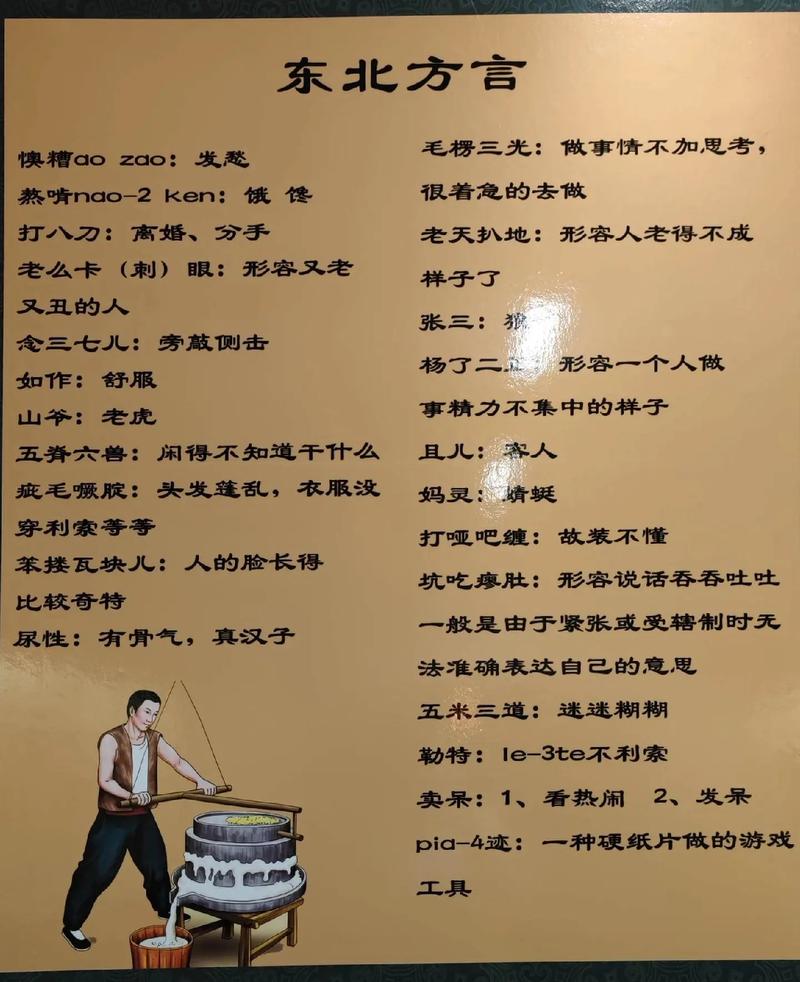 东北方言
懊糟ao zao：发愁
熬啃nao-2 ken：饿 馋
打八刀：离婚、分手
老么卡（刺）眼：形容又老
又丑的人
念三七儿：旁敲侧击
如作：舒服
山爷：老虎
五脊六兽：闲得不知道干什么
疵毛噘腚：头发蓬乱，衣服没
穿利索等等
笨搂瓦块儿：人的脸长得
比较奇特
尿性：有骨气，真汉子
毛楞三光：做事情不加思考，
很着急的去做
老天扒地：形容人老得不成
样子了
张三：
杨了二正：形容一个人做
事精力不集中的样子
且儿：客人
妈灵：蜻蜓
打哑吧缠：故装不懂
坑吃瘪肚：形容说话吞吞吐吐
一般是由于紧张或受辖制时无
法准确表达自己的意思
五米三道：迷迷糊糊
勒特：le-3te不利索
卖呆：1、看热闹 2、发呆
pia-4迹：一种硬纸片做的游戏
工具